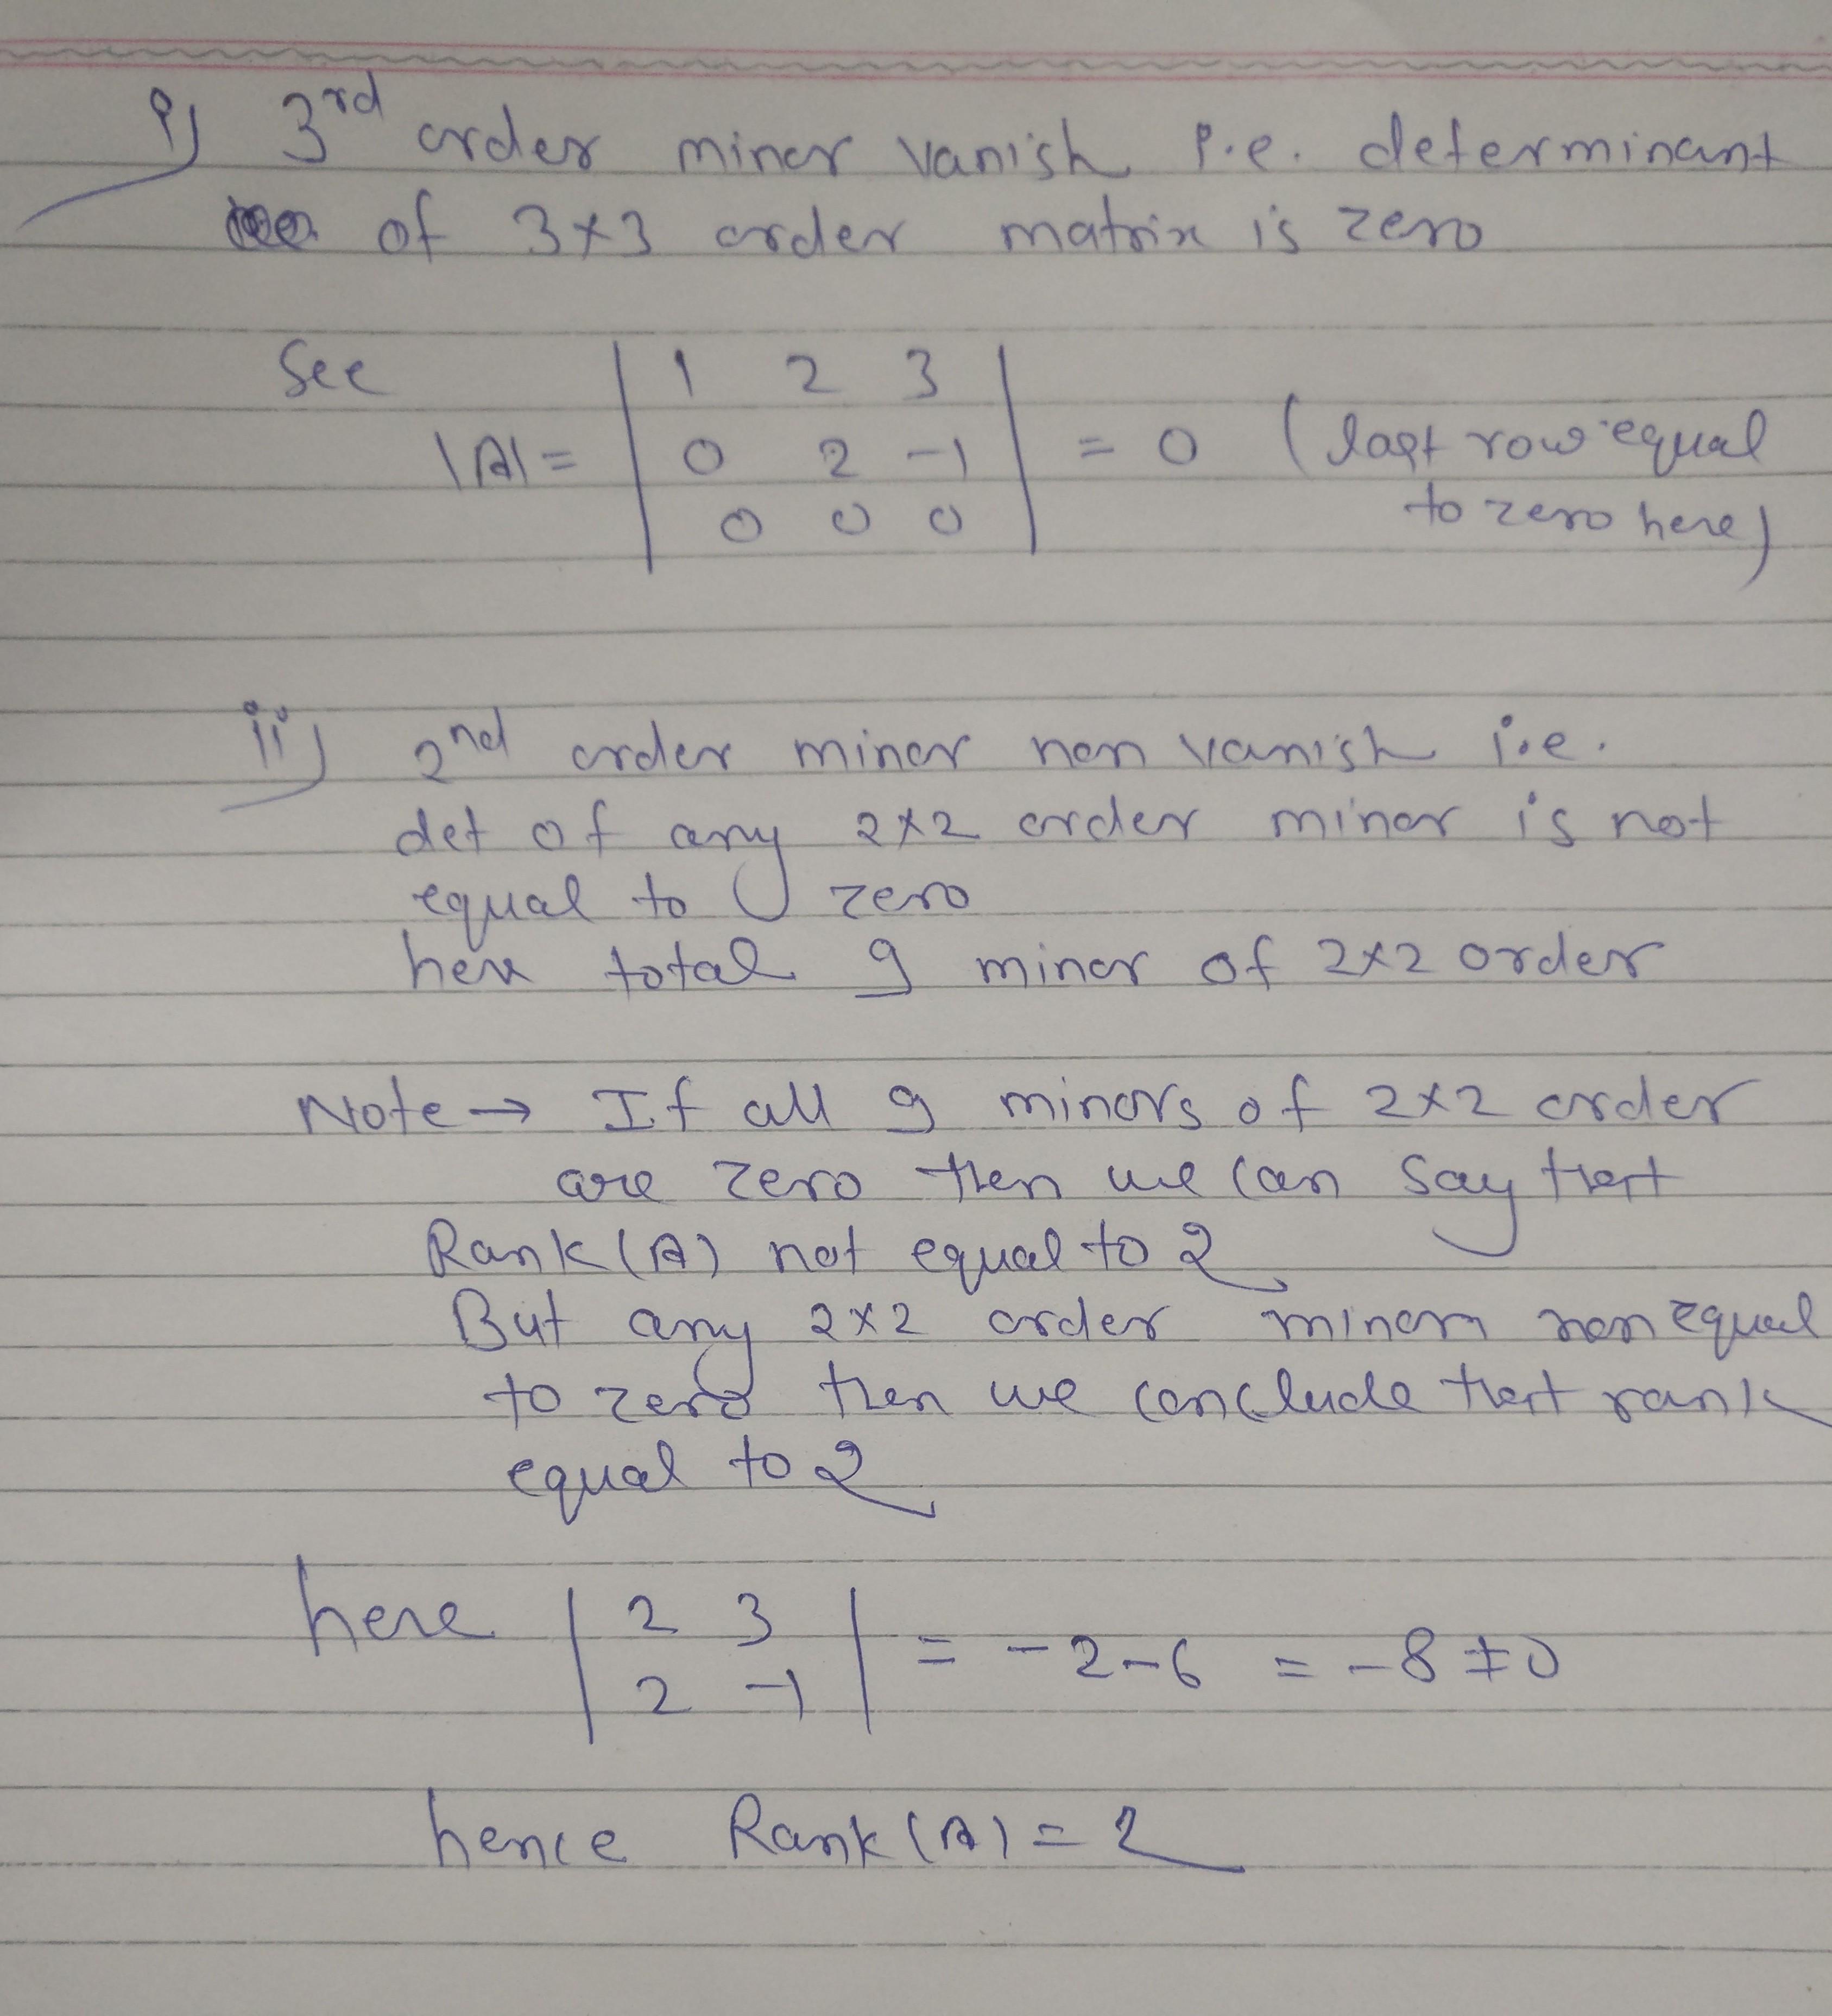 i) 3rd order minor vanish i.e. determinant
of 3×3 order matrix is zero
See
|A| = | 1 2 3 |
| 0 2 -1 | = 0 (last row equal
| 0 0 0 | to zero here)
ii) 2nd order minor non vanish i.e.
det of any 2×2 order minor is not
equal to zero
here total 9 minor of 2×2 order
Note → If all 9 minors of 2×2 order
are zero then we can say that
Rank(A) not equal to 2
But any 2×2 order minor non equal
to zero then we conclude that rank
equal to 2
here | 2 3 |
| 2 -1 | = -2-6 = -8 ≠ 0
hence Rank(A) = 2